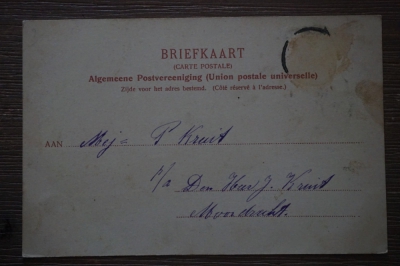 BRIEFKAART
(CARTE POSTALE)
Algemeene Postvereeniging (Union postale universelle)
Zijde voor het adres bestemd. (Côté réservé à l'adresse.)
AAN Mej= P Kruit
p/a Den Heer J. Kruit
Moordrecht.